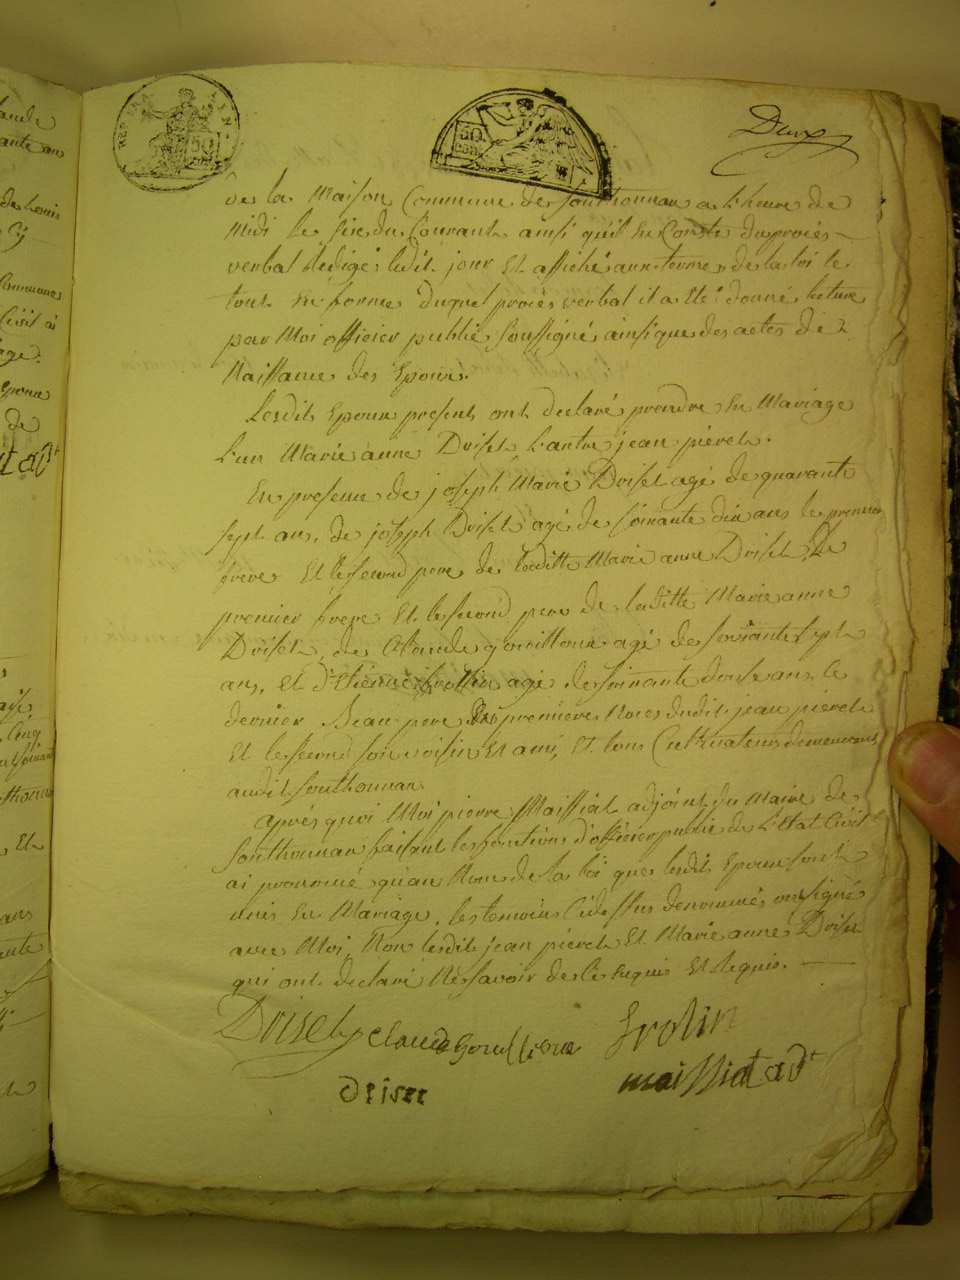 Deux
de la Maison Commune de Southonnax a L'heure de
Midi le six du Courant ainsi quil En Conste du procès
verbal Redigé ledit jour Et affiché aux termes de la loi le
tout En forme duquel procès verbal il a Eté donné lecture
par Moi officier public Soussigné ainsi que des actes de
Naissance des Epoux.
Lesdits Epoux presents ont declaré prendre En Mariage
L'un Marie anne Driset L'autre jean piéret.
En presence de joseph Marie Driset agé de quarante
sept ans, de joseph Driset agé de soixante dix ans le premier
frere Et le second pere de laditte Marie anne Driset, Le
premier frere Et le second pere de laditte Marie anne
Driset, de Claude gouilloux agé de soixante sept
ans, Et d'Etienne frollin agé de soixante douse ans le
dernier Beau pere des premieres Noces dudit jean piéret
Et le second son voisin Et ami, Et tous Cultivateurs demeurants
audit Southonnax
après quoi Moi pierre Maissiat adjoint du Maire de
Southonnax faisant les fonctions d'officier public de L'Etat Civil
ai prononcé qu'au Nom de la loi que lesdits Epoux sont
unis En Mariage, les temoins Cidessus denommés ont signé
avec Moi, Non lesdits jean piéret Et Marie anne Driset
qui ont declaré Ne savoir de ce Enquis Et Requis.
Driset Claude Frolin
driset maissiat adt